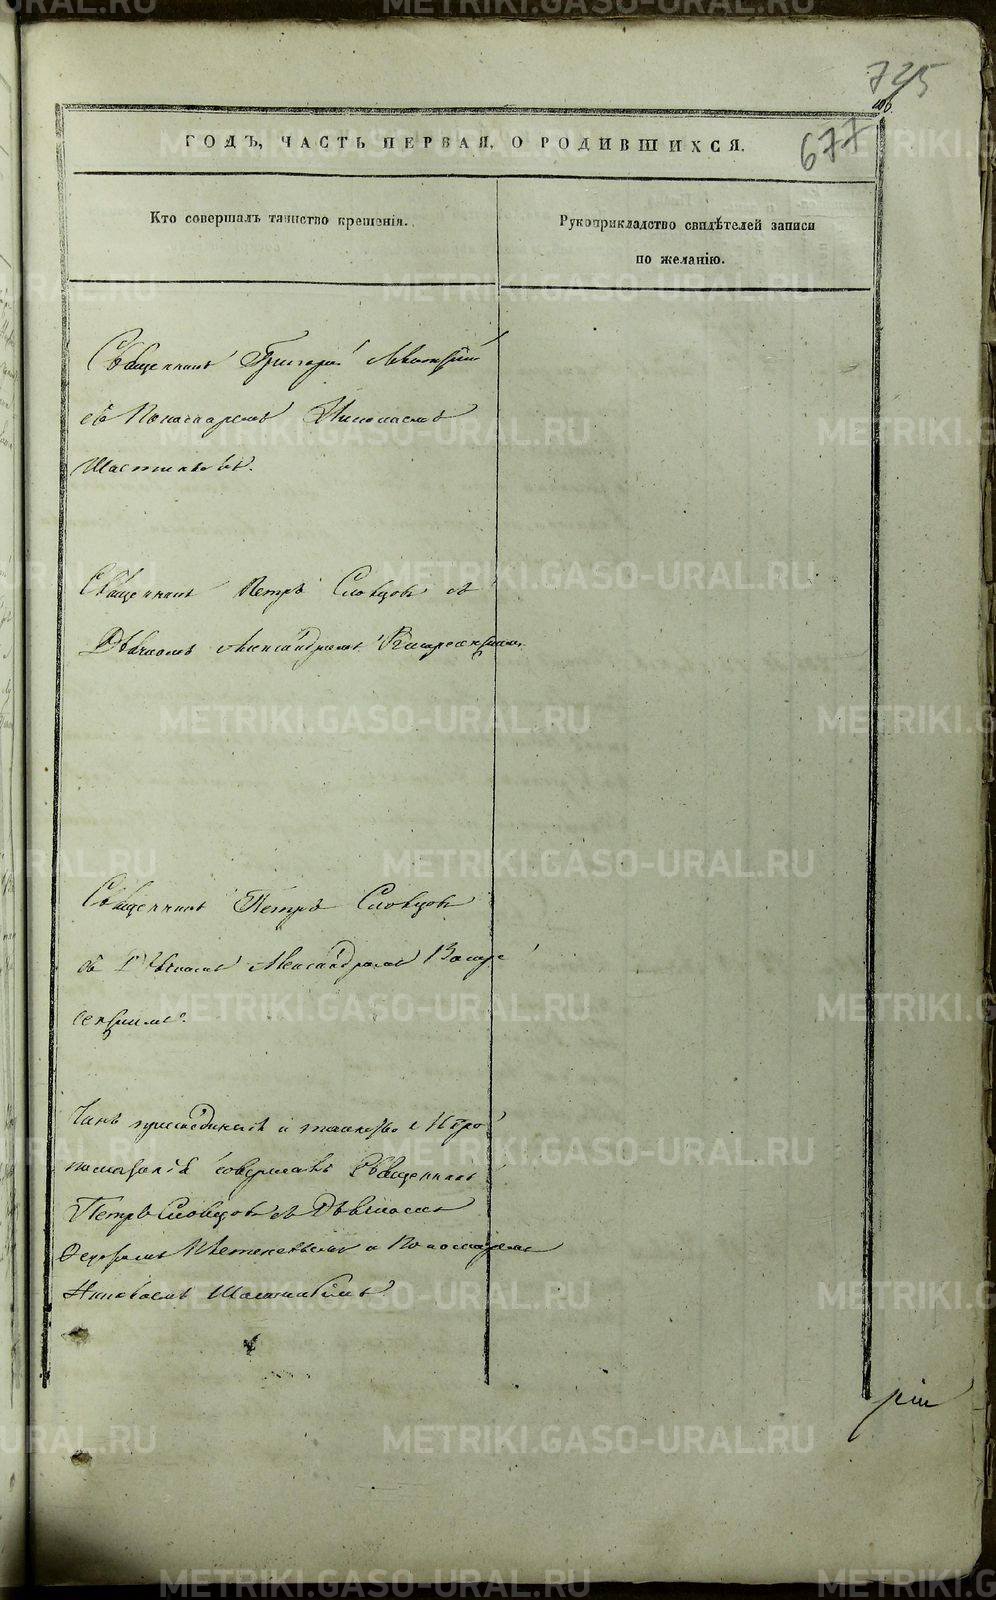 725
677
ГОДЪ, ЧАСТЬ ПЕРВАЯ, О РОДИВШИХСЯ.
Кто совершалъ таинство крещенія.
Рукоприкладство свидѣтелей записи
по желанію.
Священникъ Григорій Левитскій
съ Пономаремъ Николаемъ
Шастиковъ.
Священникъ Петръ Словцовъ съ
Дьячкомъ Александромъ Воскресенскимъ
Священникъ Петръ Словцовъ
съ Дьячкомъ Александромъ Воскре
сенскимъ.
Чинъ присоединенія и таинство Мѵро
помазанія совершалъ Священникъ
Петръ Словцовъ съ Дьячкомъ
и Пономаремъ
Николаемъ
METRIKI.GASO-URAL.RU